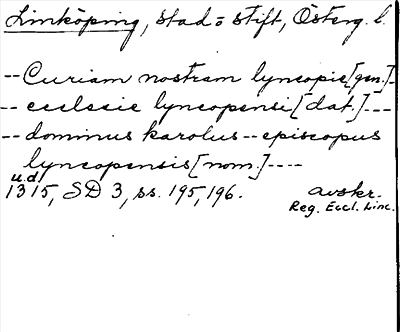 Linköping, stad = stift, Österg. l.
-- Curiam nostram lyncopie [gen.] -
-- ecclesie lyncopensi [dat.] ---
-- dominus karolus -- episcopus
lyncopensis [nom.] ----
u.d.
1315, SD 3, ss. 195, 196.
avskr.
Reg. Eccl. Linc.